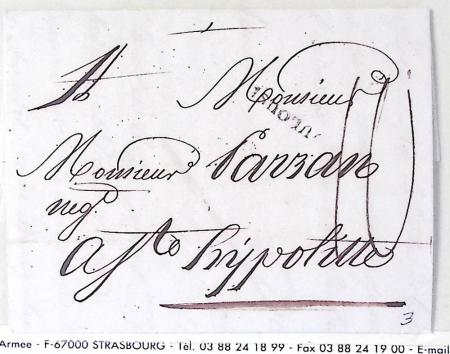 A Monsieur
Monsieur Sarran
neg.
a Ste hÿpolitte
3
Armée - F-67000 STRASBOURG - Tél. 03 88 24 18 99 - Fax 03 88 24 19 00 - E-mail